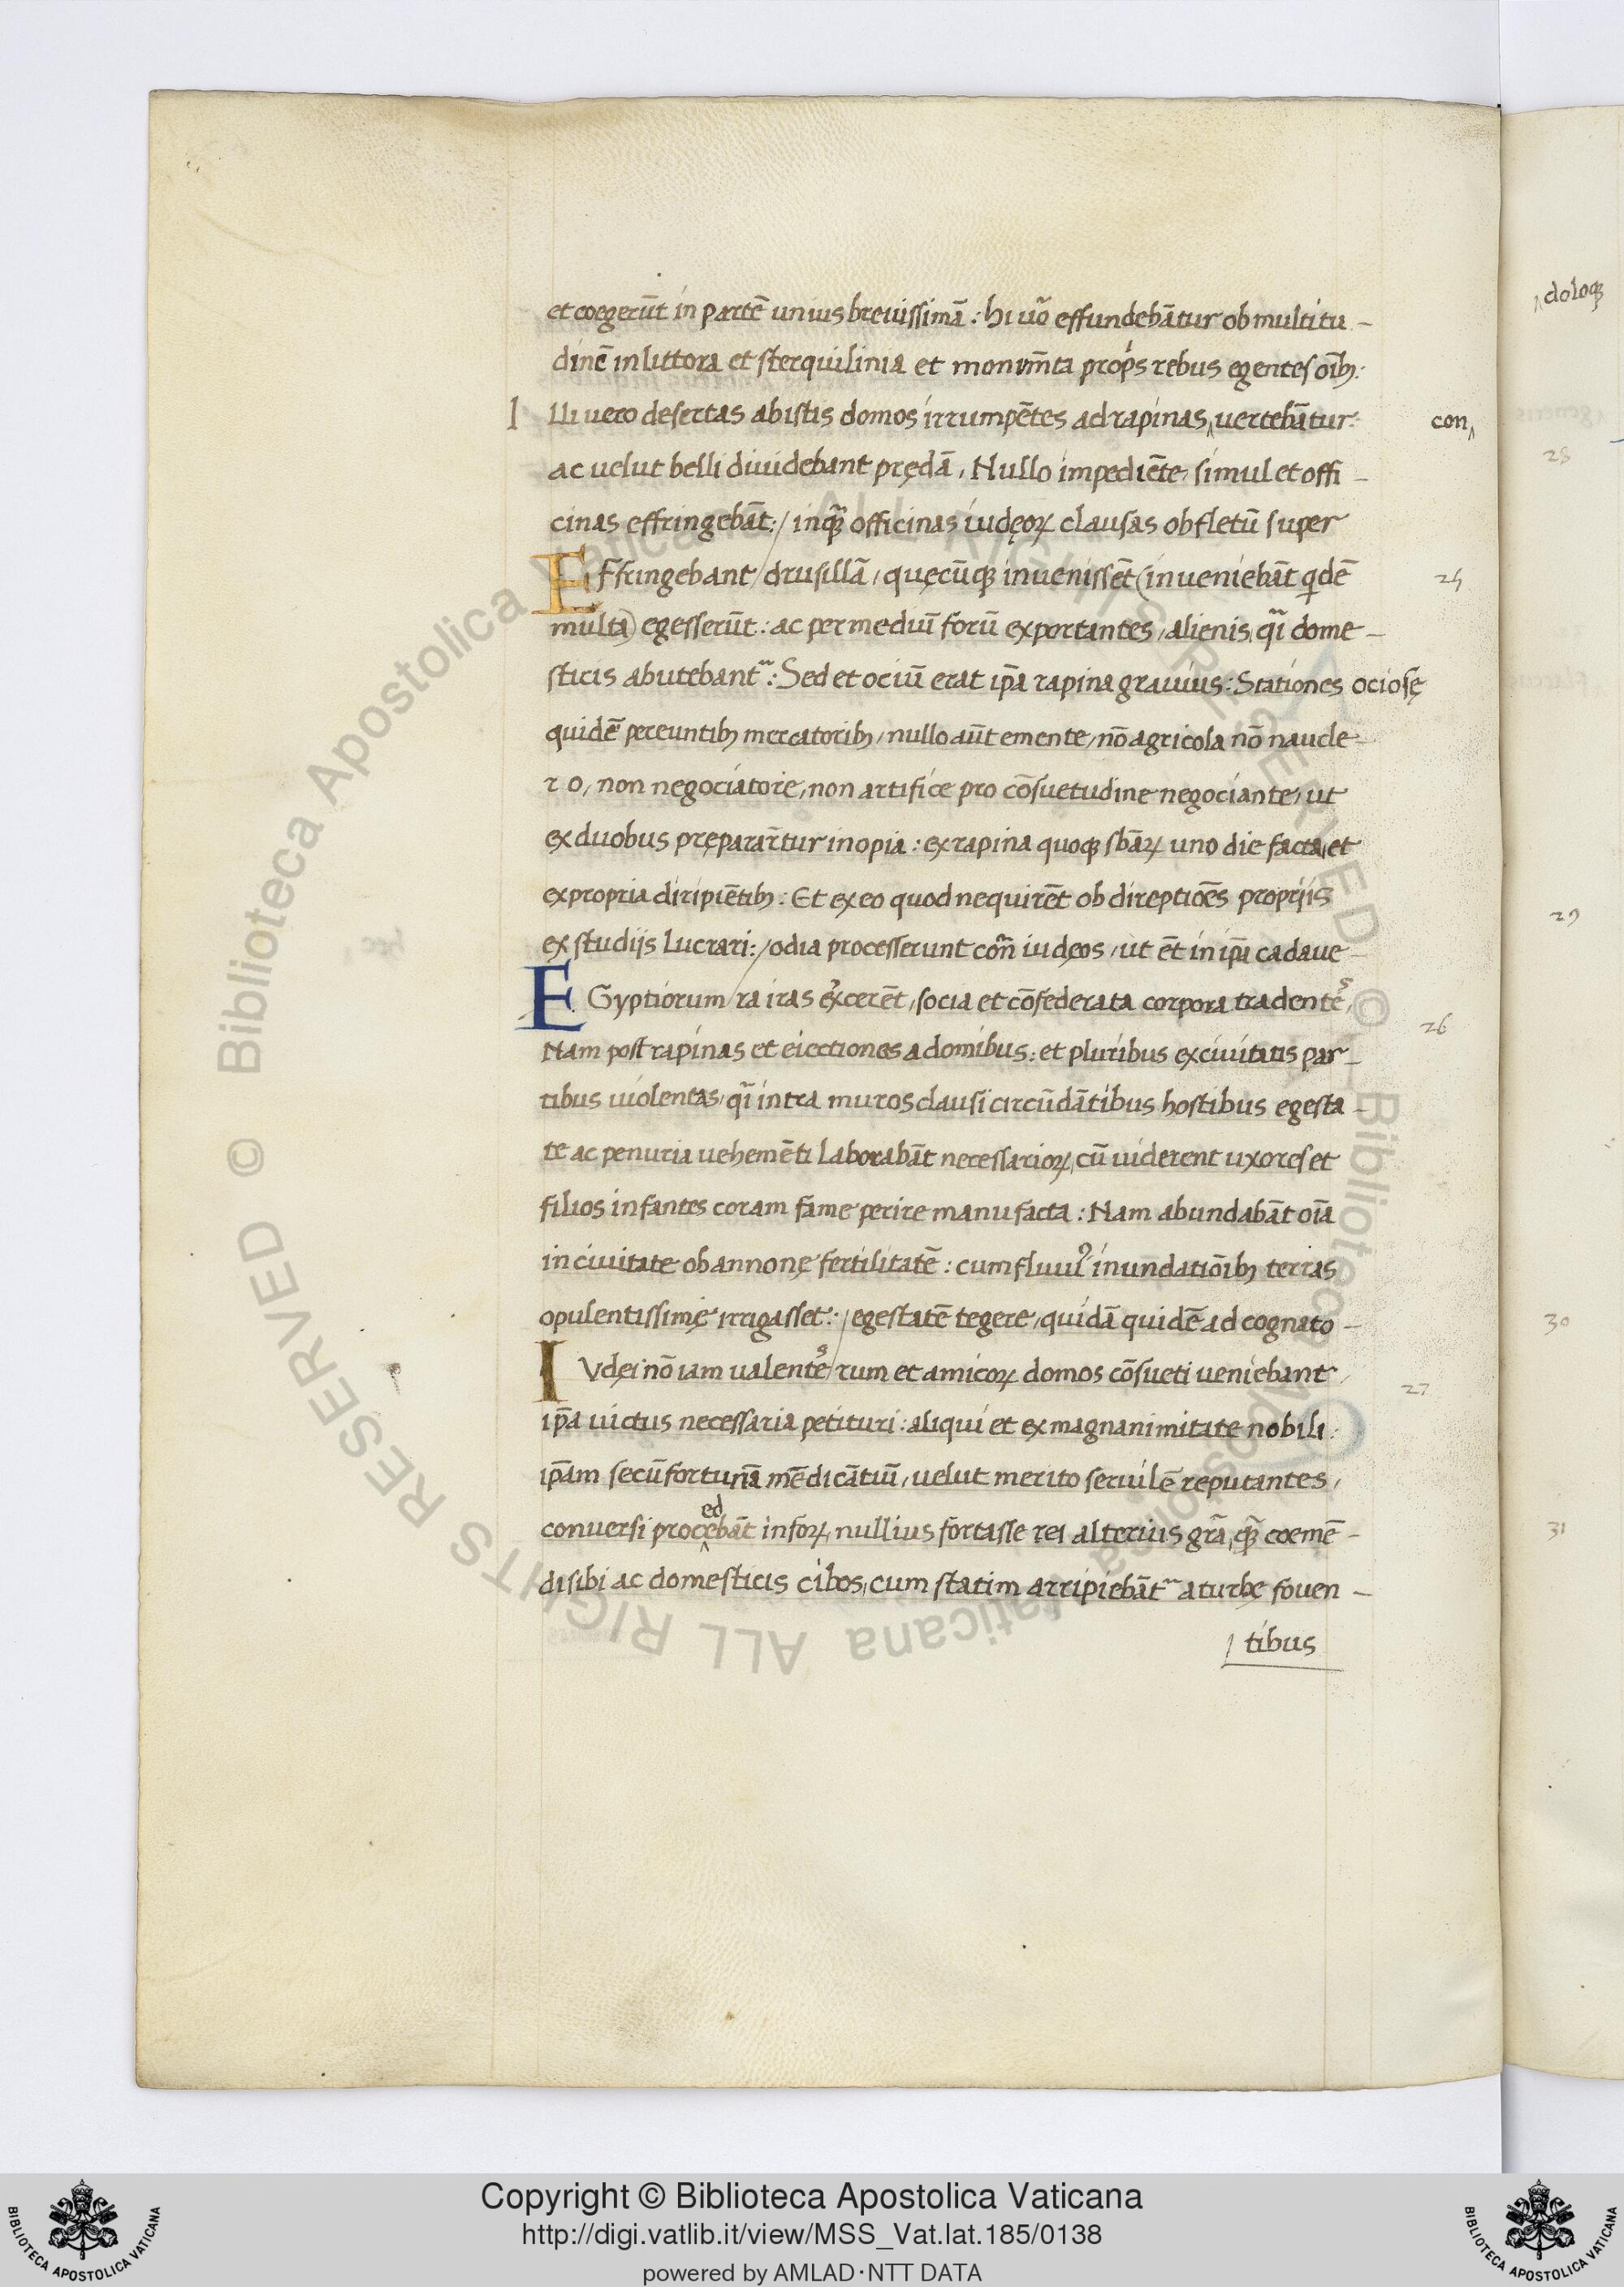 et coegerūt in partē unius breuissimā: hi uo᷑ effundebātur ob multitu-
dinē in littora et sterquilinia et monum̄ta prop̄s rebus egentes oīb;:
Illi uero desertas ab istis domos irrumpētes ad rapinas uertebātur: con
ac uelut belli diuidebant prędā. Nullo impediēte, simul et offi-
cinas effringebāt:/ inq officinas iudęoꝝ clausas ob fletū super
EFfringebant/ drusillā, quęcūq; inuenissēt (inueniebāt qdē 25
multa) egesserūt: ac per mediū forū exportantes, alienis, qi dome-
sticis abutebant᷑: Sed et ociū erat ip̄a rapina grauius: Stationes ociosę
quidē pereuntib; mercatorib;, nullo aūt emente, nō agricola nō naucle-
ro, non negociatore, non artifice pro cōsuetudine negociante, ut
ex duobus pręparar̄tur inopia: ex rapina quoq; sbāꝝ uno die facta, et
ex propria diripiētib;: Et ex eo quod nequirēt ob direptiōes proprijs
ex studijs lucrari:/ odia processerunt con̄ iudęos, ut ēt in ip̄a cadaue-
EGyptiorum/ ra iras ex̓cerēt, socia et cōfederata corpora tradentēs, 26
Nam post rapinas et eiectiones a domibus: et pluribus ex ciuitatis par-
tibus uiolentas, qi intra muros clausi circūdātibus hostibus egesta-
te ac penuria uehemēti laborabāt necessarioꝝ, cū uiderent uxores et
filios infantes coram fame perire manufacta: Nam abundabāt oīa
in ciuitate ob annonę fertilitatē: cum fluuiꝰ inundatiōib; terras
opulentissimę irrigasset:/ egestatē tegere, quidā quidē ad cognato-
IVdęi nō iam ualentēs/ rum et amicoꝝ domos cōsueti ueniebant, 27
ip̄a uictus necessaria petituri: aliqui et ex magnanimitate nobili:
ip̄am secū fortunā mēdicātiū, uelut merito seruilē reputantes,
conuersi procedebāt in foꝝ, nullius fortasse rei alterius grā, q; coemē-
di sibi ac domesticis cibos, cum statim arripiebāt᷑ a turbę fouen-
tibus
doloq;
28
29
30
31
Copyright © Biblioteca Apostolica Vaticana
http://digi.vatlib.it/view/MSS_Vat.lat.185/0138
powered by AMLAD·NTT DATA
BIBLIOTECA APOSTOLICA VATICANA
BIBLIOTECA APOSTOLICA VATICANA
© Biblioteca Apostolica Vaticana ALL RIGHTS RESERVED
© Biblioteca Apostolica Vaticana ALL RIGHTS RESERVED